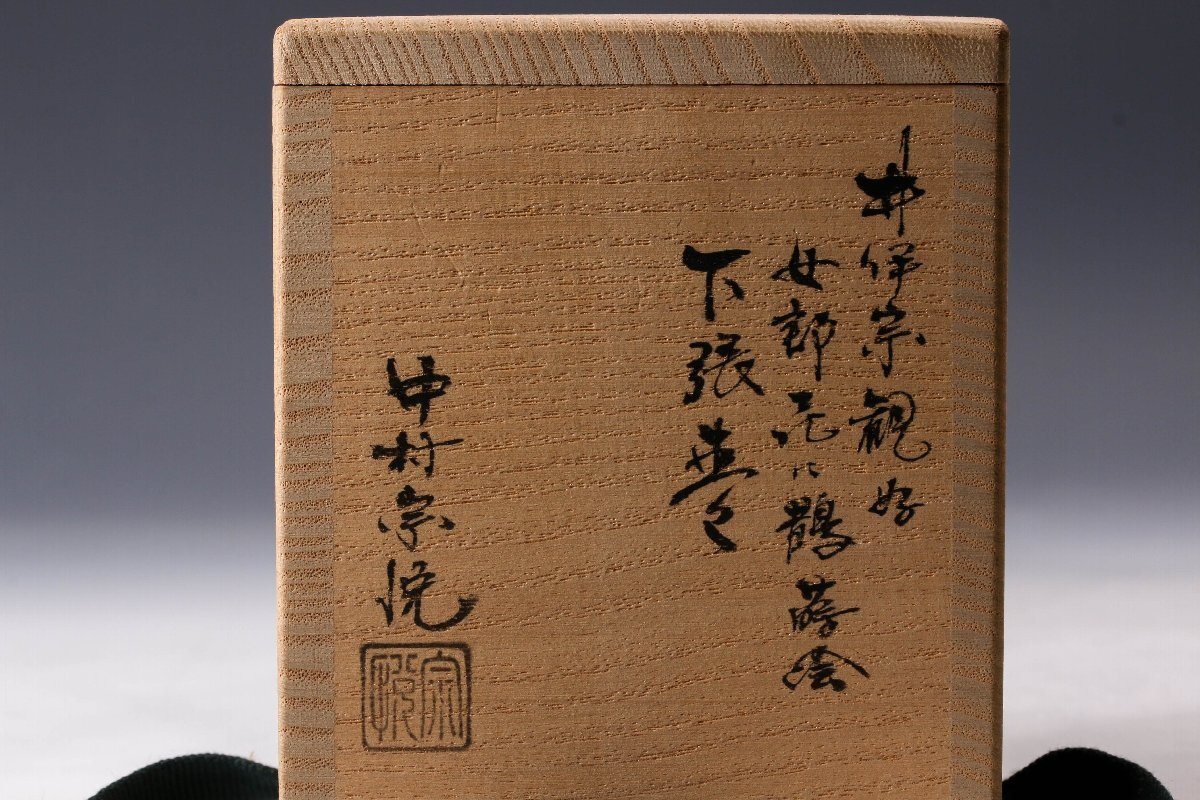 井伊宗観好
女郎花に鵲蒔絵
下張棗
中村宗悦
宗悦